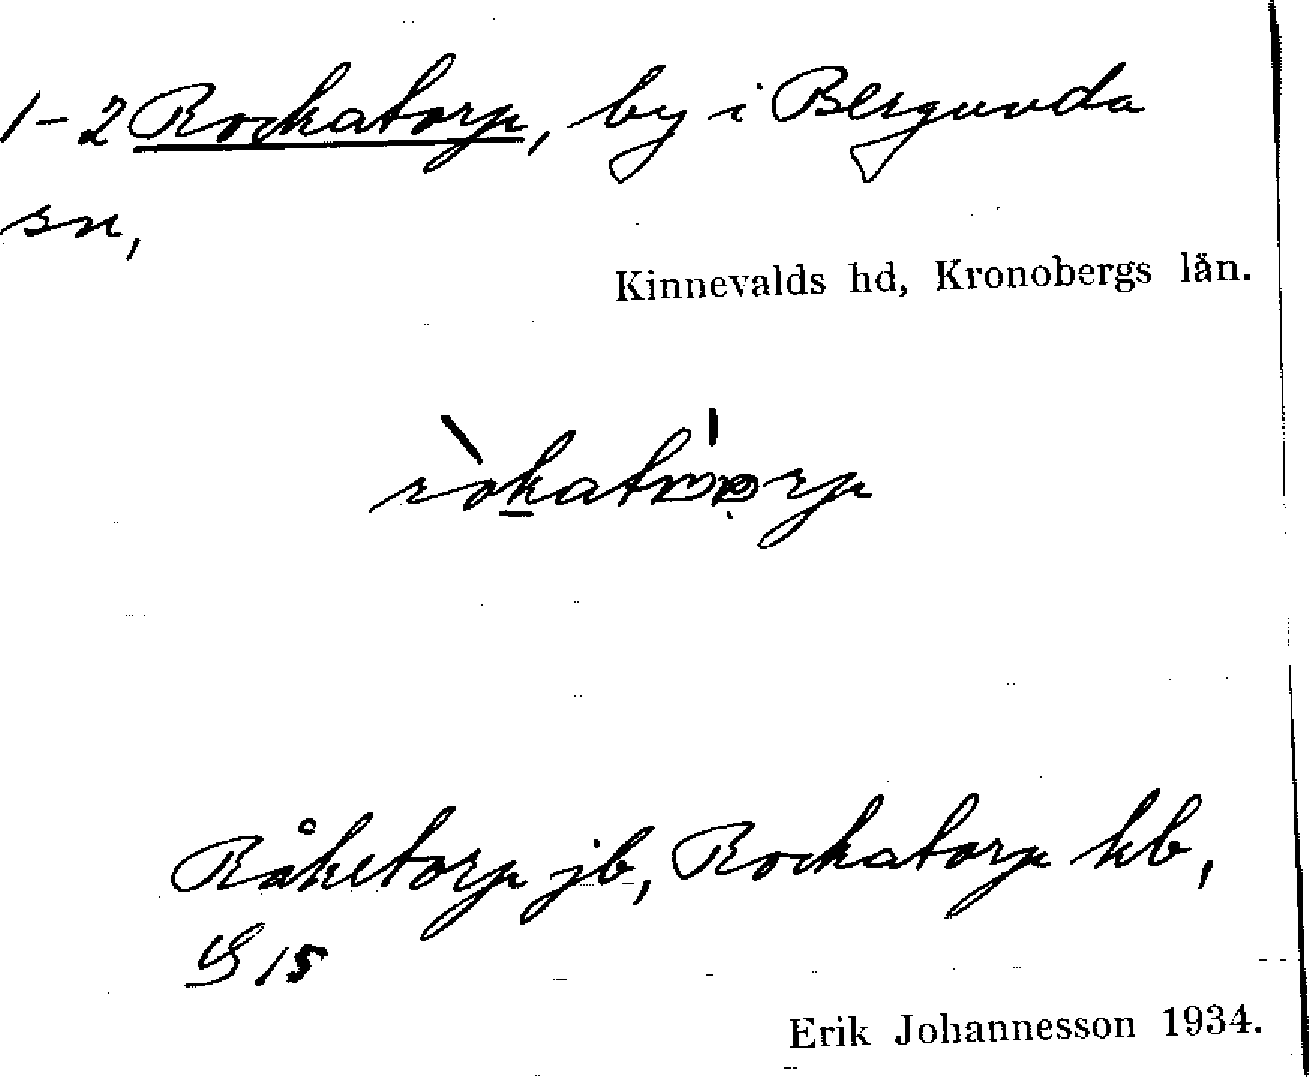 1-2 Rockatorp, by i Bergunda
sn,
Kinnevalds hd, Kronobergs län.
Råketorp jb, Rockatorp kb,
S 15
Erik Johannesson 1934.